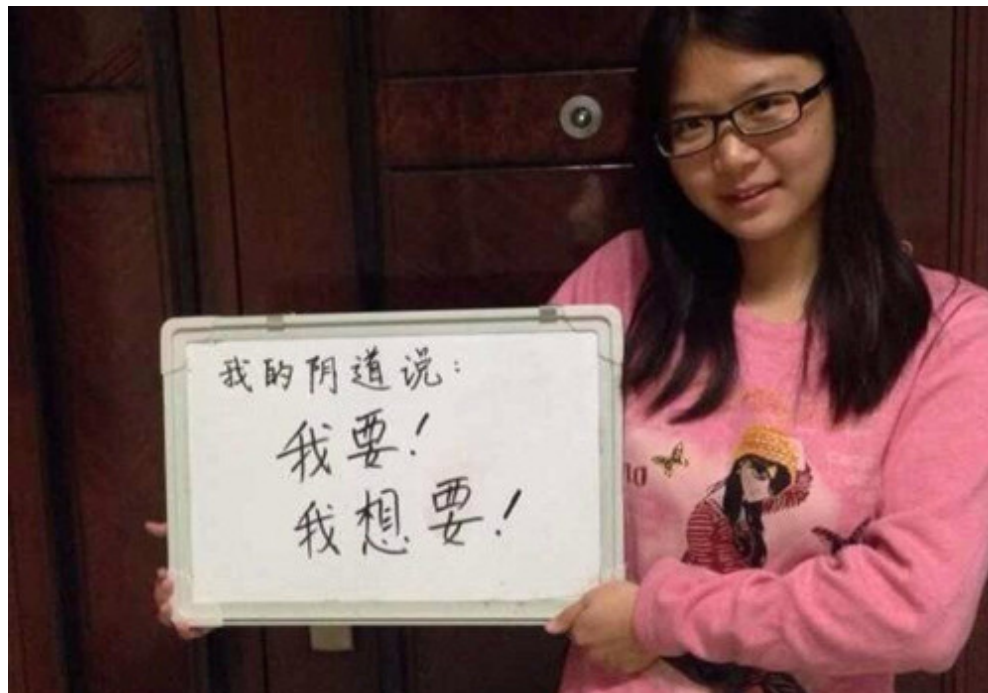 我的阴道说：
我要！
我想要！